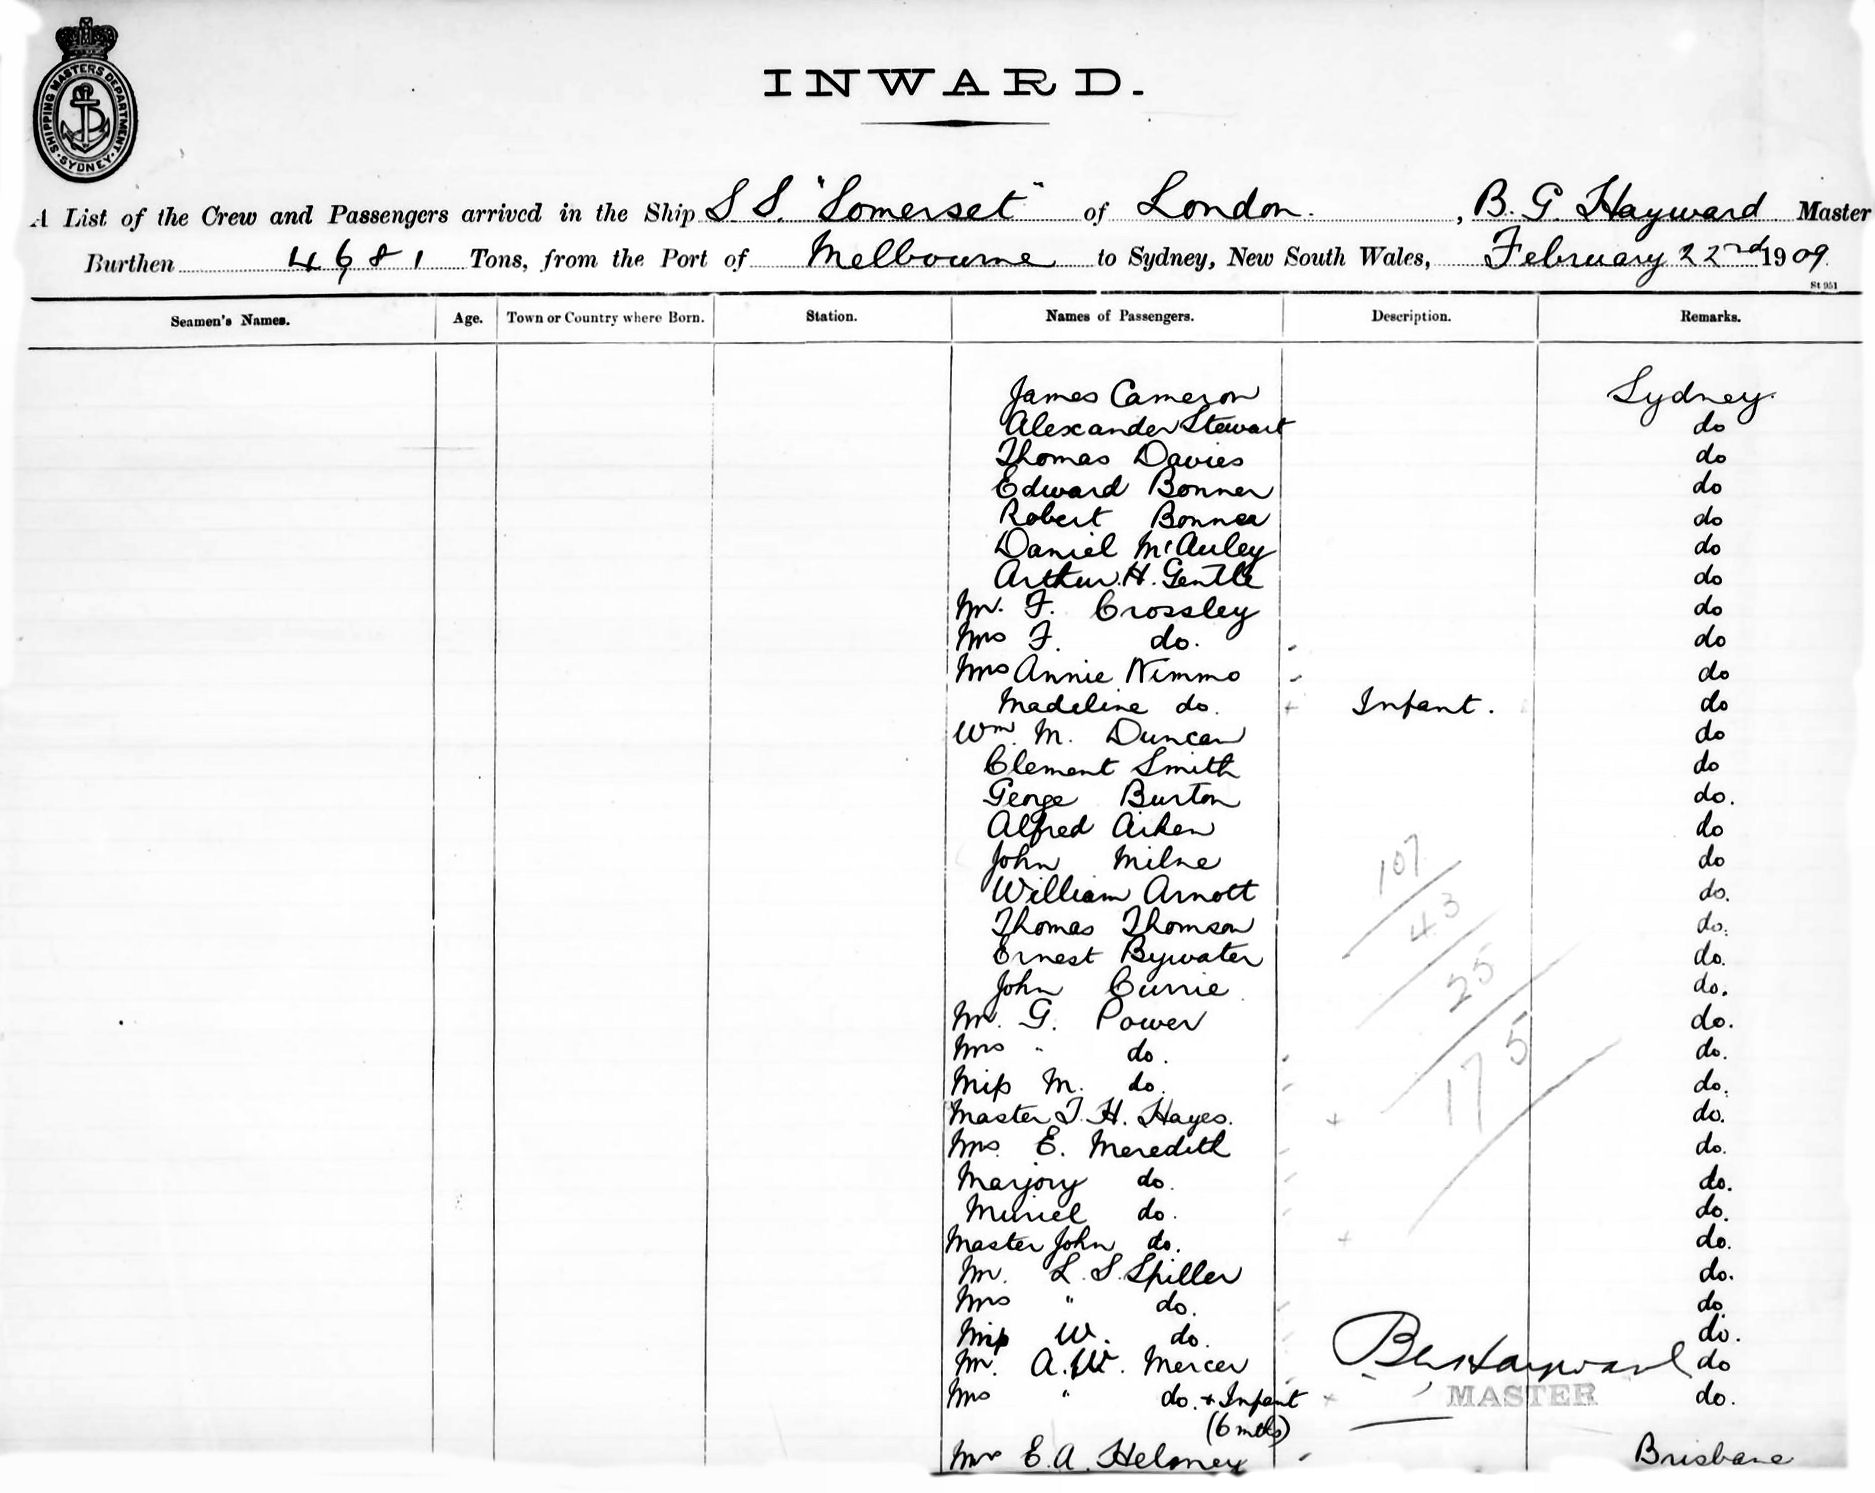 SHIPPING MASTERS DEPARTMENT
SYDNEY
INWARD.
A List of the Crew and Passengers arrived in the Ship S S. "Somerset" of London. , B. G. Hayward Master
Burthen 4681 Tons, from the Port of Melbourne to Sydney, New South Wales, February 22nd 1909.
St 951
Seamen's Names. Age. Town or Country where Born. Station. Names of Passengers. Description. Remarks.
James Cameron Sydney.
Alexander Stewart do
Thomas Davies do
Edward Bonner do
Robert Bonner do
Daniel McAuley do
Arthur. H. Gentle do
Mr. F. Crossley do
Mrs F. do. do
Mrs Annie Nimmo do
Madeline do. Infant. do
Wm. M. Duncan do
Clement Smith do
George Burton do.
Alfred Aiken do
John Milne do
107
William Arnott do.
43
Thomas Thomson do.
Ernest Bywater do.
25
John Currie do.
Mr. G. Power do.
Mrs " do. do.
175
Miss M. do. do.
Master T. H. Hayes. do.
Mrs. E. Meredith do.
Marjory do. do.
Muriel do. do.
Master John do. do.
Mr. L. S. Spiller do.
Mrs " do. do
Miss W. do. do.
Mr. A. W. Mercer do
Mrs " do. + Infant do.
(6 mths)
MASTER
E. A. Brisbane